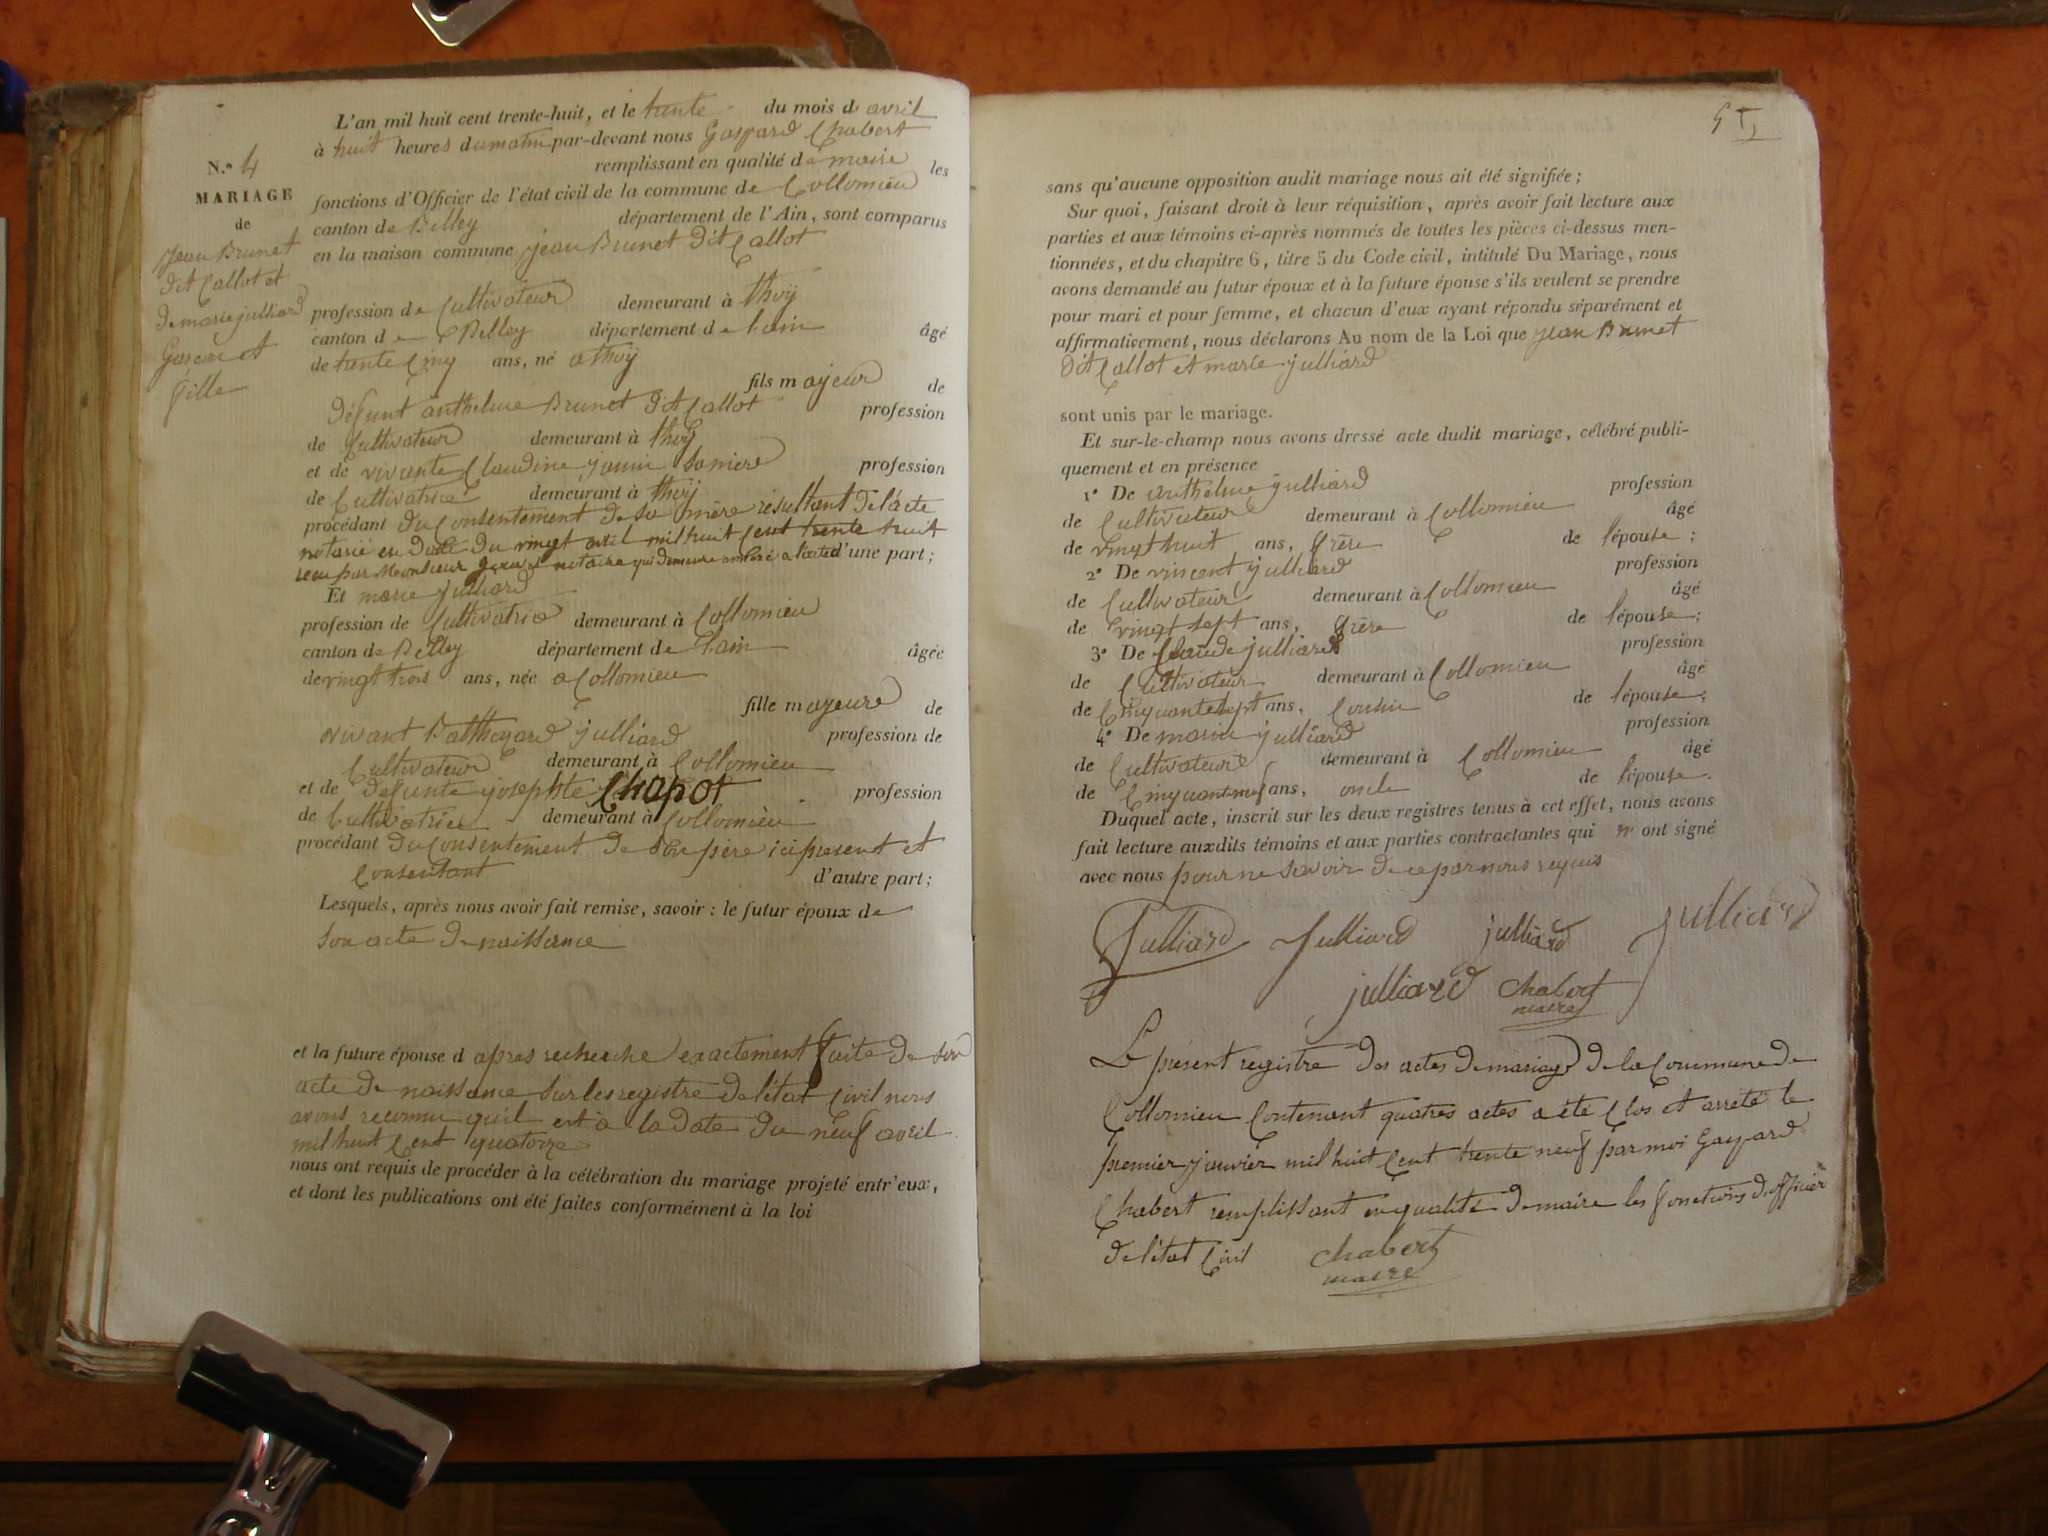 N.o 4
MARIAGE
de
Jean Brunet
dit Callot et
de marie julliard
Garcon et
fille
L'an mil huit cent trente-huit, et le trente du mois d avril
à huit heures du matin par-devant nous Gaspard Chabert
remplissant en qualité de maire les
fonctions d'Officier de l'état civil de la commune de Collomieu
canton de Belley département de l'Ain, sont comparus
en la maison commune jean Brunet dit Callot
profession de Cultivateur demeurant à thoÿ
canton d e Belley département de lain âgé
de trente cinq ans, né a thoÿ
fils majeur de
défunt anthelme Brunet dit Callot profession
de Cultivateur demeurant à thoÿ
et de vivante Claudine janin Somere profession
de Cultivatrice demeurant à thoÿ
procédant du Consentement de sa mère résultant de l'acte
notarié en date du vingt avril mil huit cent trente huit
recu par Monsieur notaire qui demeure a l'acte d'une part;
Et marie julliard
profession de Cultivatrice demeurant à Collomieu
canton de Belley département de lain âgée
de vingt trois ans, née a Collomieu
fille majeure de
vivant Balthazard julliard profession de
Cultivateur demeurant à Collomieu
et de défunte josephte Chapot profession
de Cultivatrice demeurant à Collomieu
procédant du Consentement de son père ici présent et
Consentant d'autre part;
Lesquels, après nous avoir fait remise, savoir: le futur époux de
son acte de naissance
et la future épouse d apres recherche exactement faite de son
acte de naissance sur les registre de l'état Civil nous
avons reconnu quil est à la date du neuf avril
mil huit Cent quatorze
nous ont requis de procéder à la célébration du mariage projeté entr'eux,
et dont les publications ont été faites conformément à la loi
sans qu'aucune opposition audit mariage nous ait été signifiée;
Sur quoi, faisant droit à leur réquisition, après avoir fait lecture aux
parties et aux témoins ci-après nommés de toutes les pièces ci-dessus men-
tionnées, et du chapitre 6, titre 5 du Code civil, intitulé Du Mariage, nous
avons demandé au futur époux et à la future épouse s'ils veulent se prendre
pour mari et pour femme, et chacun d'eux ayant répondu séparément et
affirmativement, nous déclarons Au nom de la Loi que jean Brunet
dit Callot et marie julliard
sont unis par le mariage.
Et sur-le-champ nous avons dressé acte dudit mariage, célébré publi-
quement et en présence
1o De anthelme julliard profession
de Cultivateur demeurant à Collomieu âgé
de vingt huit ans, frère de lépouse;
2o De vincent julliard profession
de Cultivateur demeurant à Collomieu âgé
de vingt sept ans, frère de lépouse;
3o De Claude julliard profession
de Cultivateur demeurant à Collomieu âgé
de Cinquante sept ans, Cousin de lépouse;
4o De marin julliard profession
de Cultivateur demeurant à Collomieu âgé
de Cinquant neuf ans, oncle de lépouse.
Duquel acte, inscrit sur les deux registres tenus à cet effet, nous avons
fait lecture auxdits témoins et aux parties contractantes qui n' ont signé
avec nous pour ne savoir de ce par nous requis
Julliard Julliard julliard Julliard
julliard Chabert
maire
Le présent registre des actes de mariage de la Commune de
Collomieu Contenant quatres actes a été Clos et arrété le
premier janvier mil huit Cent trente neuf par moi Gaspard
Chabert remplissant en qualité de maire les fonctions d'officier
de l'état Civil Chabert
maire